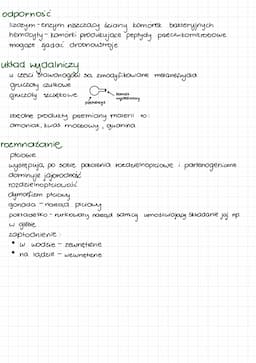 odporność
lizozym - enzym niszczący ściany komórek bakteryjnych
hemocyty - komórki produkujące peptydy przeciwdrobnoustrojowe
mogące zjadać drobnoustroje
układ wydalniczy
u części stawonogów są zmodyfikowane metanefrydia
gruczoły czułkowe
gruczoły szczękowe
kanalik
wydalniczy
pęcherzyk
zbędne produkty przemiany materii to:
amoniak, kwas moczowy, guanina
rozmnażanie
płciowe
występują po sobie pokolenia rozdzielnopłciowe i partenogeniczne
dominuje jajorodność
rozdzielnopłciowość
dymorfizm płciowy
gonada - narząd płciowy
pokładełko - rurkowaty narząd samicy umożliwiający składanie jaj np.
w glebie
zapłodnienie:
• w wodzie - zewnętrzne
• na lądzie - wewnętrzne